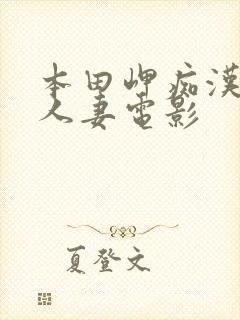 本田岬痴漢
人妻電影
夏登文